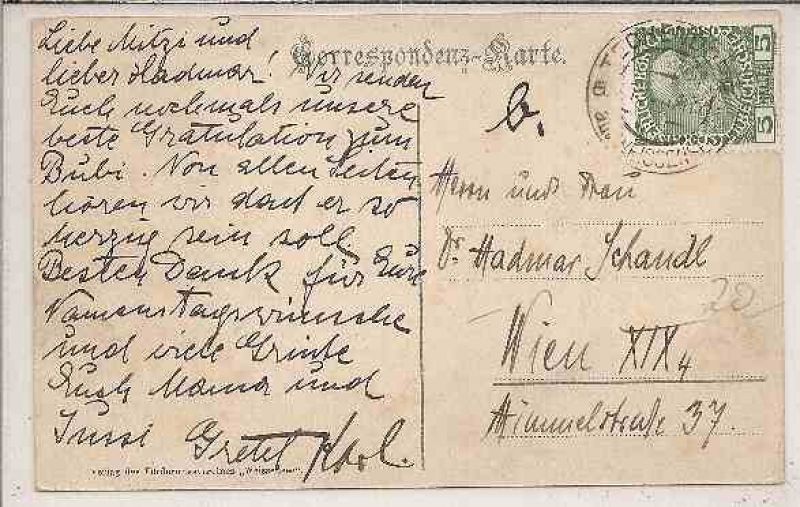 Correspondenz-Karte.
Liebe Mitzi und
lieber Hadmar! Wir senden
Euch nochmals unsere
beste Gratulation zum
Bubi. Von allen Seiten
hören wir das er so
herzig sein soll.
Besten Dank für Eure
Namenstagswünsche
und viele Grüsse
Euch Mama und
Jussi Gretel Karl.
b.
Herrn und Frau
Dr. Hadmar Schandl
Wien XIX/4
Himmelstraße 37.
20
5
5